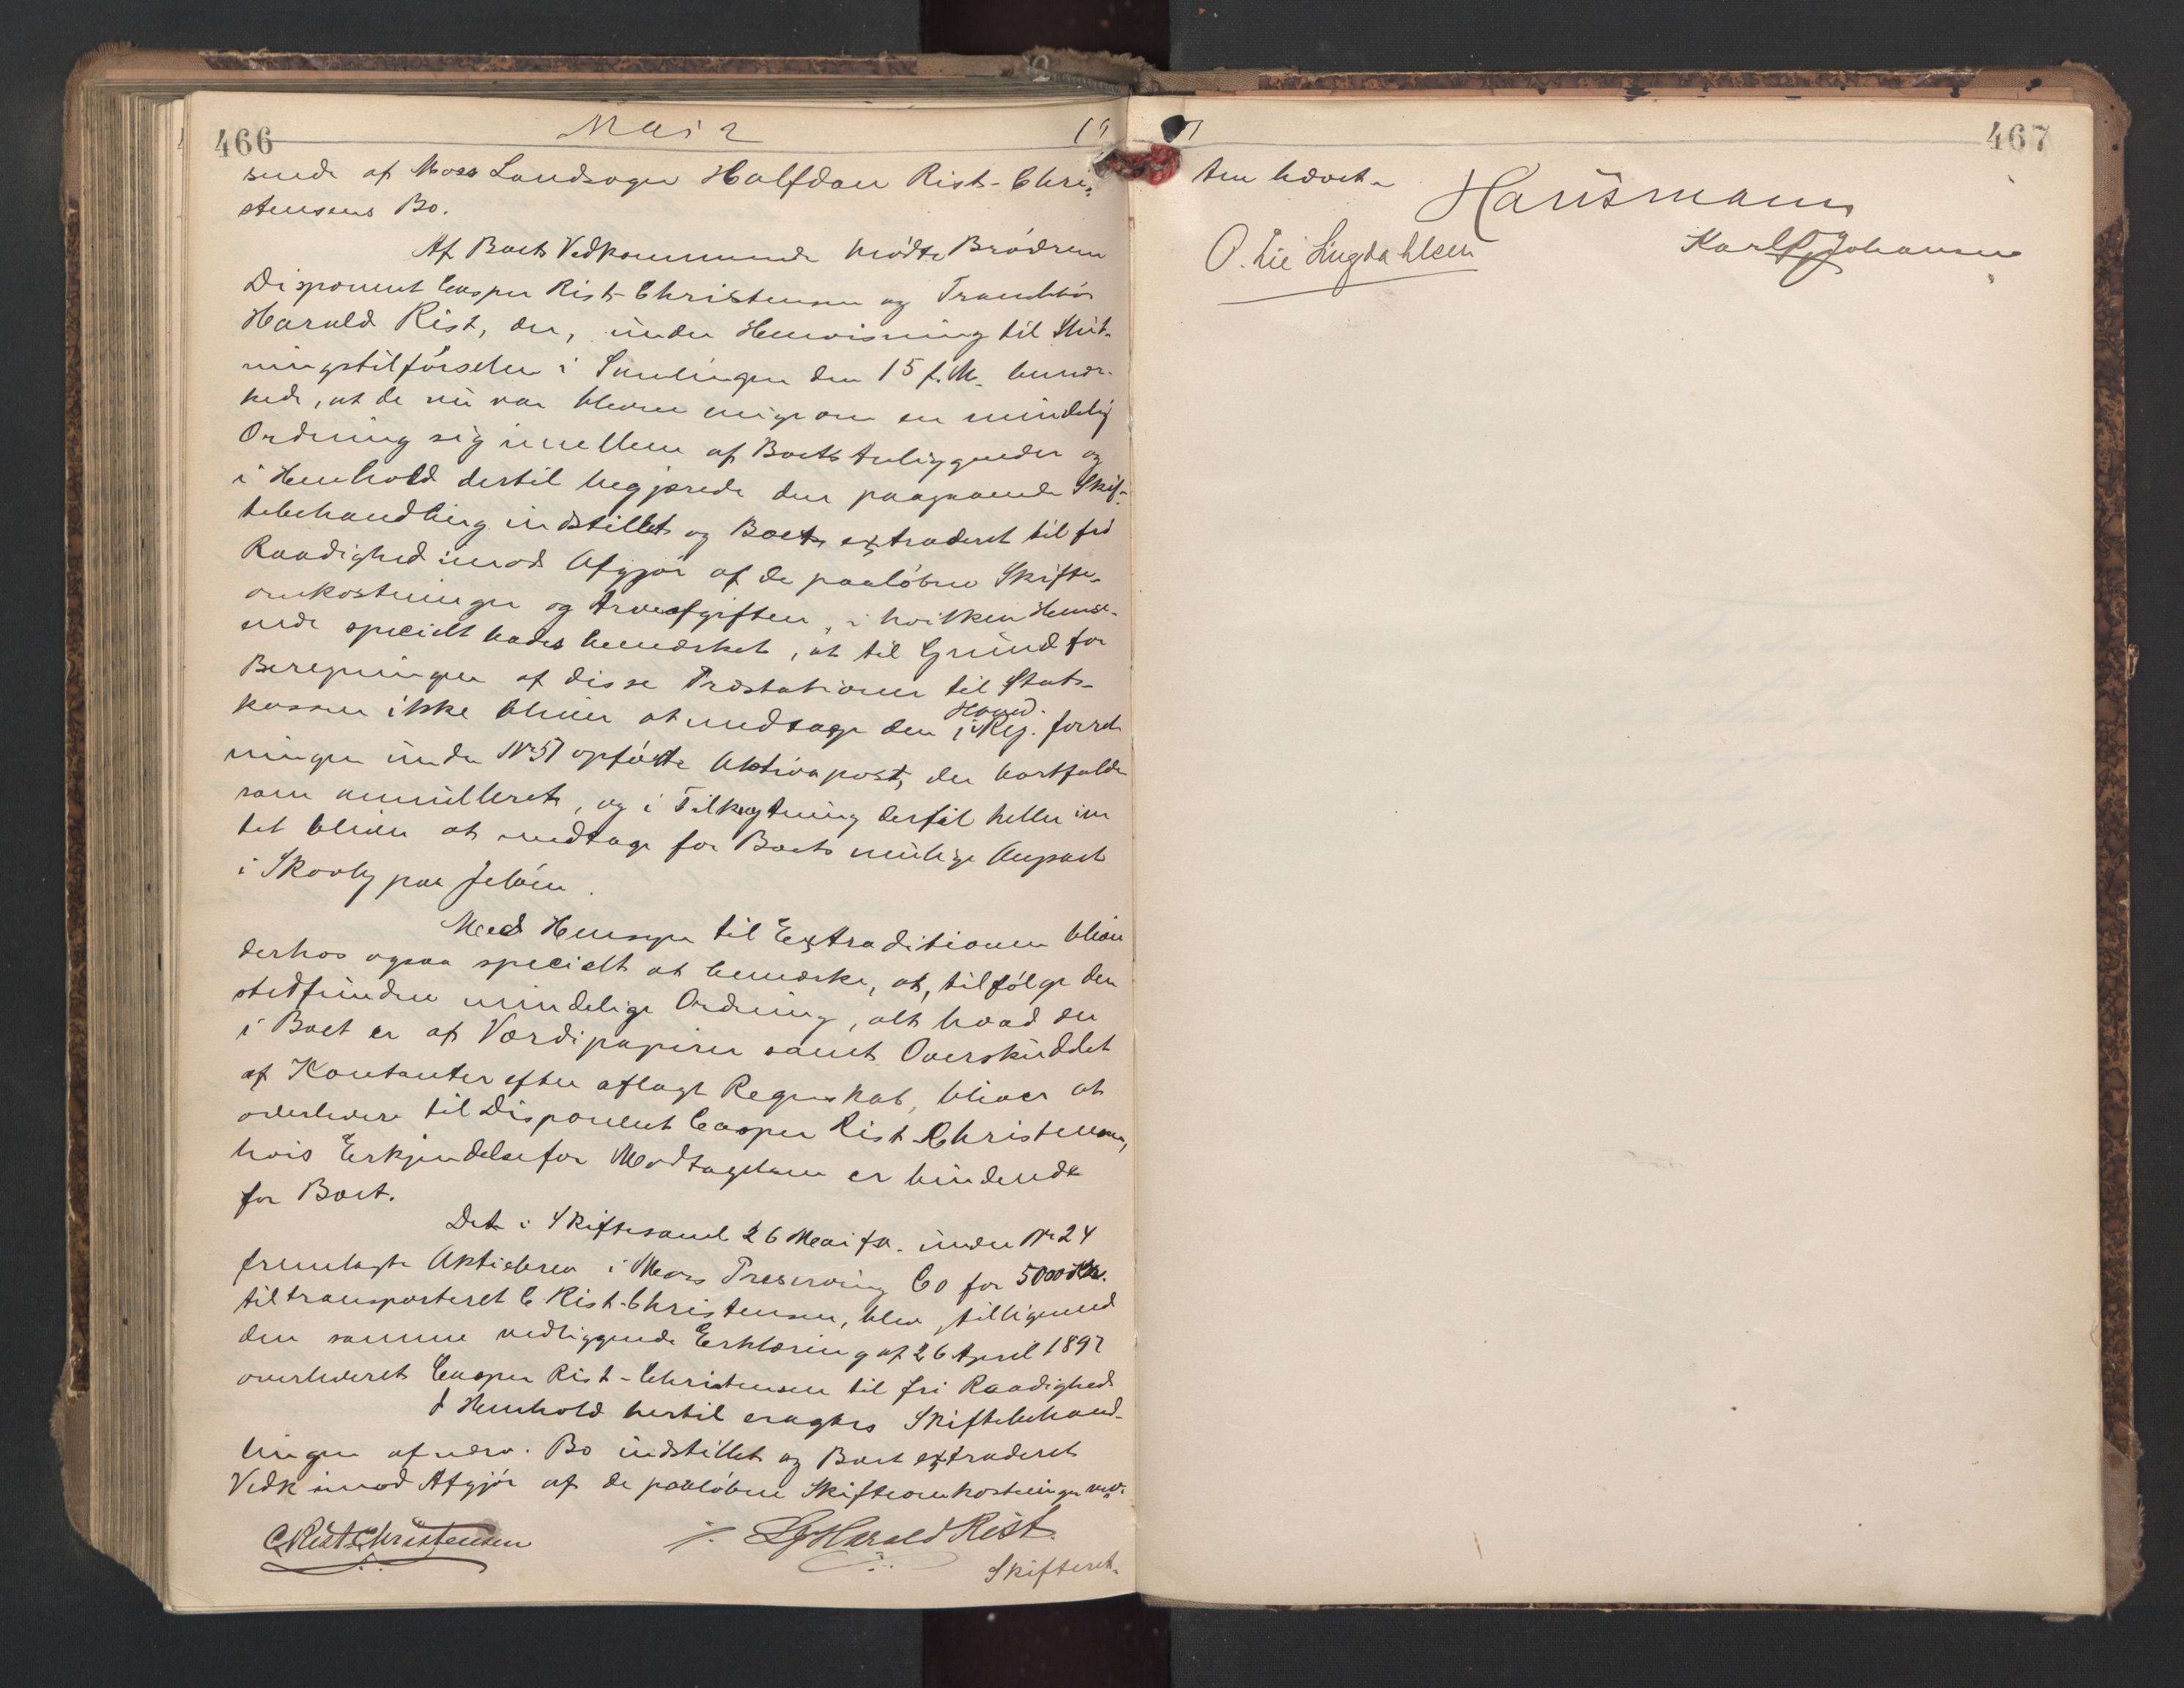 466
Mai 2
sende af Moss Landsogn Halfdan Rist-Chri-
stensens Bo.
Af Boets Vedkommende mødte Brødrene
Disponent Casper Rist-Christensen og
Harald Rist, der, under Henvisning til Slut-
ningstilførselen i Samlingen den 15 f. M. bemær-
kede, at de nu var blevne enige om en mindelig
Ordning sig imellem af Boets Anliggender og
i Henhold dertil begjærede den paagaaende Skif-
tebehandling indstillet og Boets extraderet til fri
Raadighed imod Afgjør af de paaløbne Skifte-
omkostninger og Arveafgiften, i hvilken Hense-
ende specielt bades bemærket, at til Grund for
Beregningen af disse Præstationer til Stats-
kassen ikke bliver at medtage den i Reg. forret
ningen under No 57 opførte Aktivapost, der bortfalder
som annulleret, og i Tilknytning dertil heller in
tet bliver at medtage for Boets mulige Anpart
i Skovly paa Jeløen.
Med Hensyn til Extraditionen bliver
derhos ogsaa specielt at bemærke, at, tilfølge den
stedfundne mindelige Ordning, alt hvad der
i Boet er af Værdipapirer samt Overskuddet
af Kontanter efter aflagt Regnskab, bliver at
overlevere til Disponent Casper Rist-Christensen,
hvis Erkjendelse for Modtagelsen er bindende
for Boet.
Det i Skiftesaml 26 Mai f. A. under No 24
fremlagte Aktiebrev i Moss Preserving Co for 5000 Kr.
tiltransporteret C Rist-Christensen, blev, tilligemed
den samme vedliggende Erklæring af 26 April 1897
overleveret Casper Rist-Christensen til fri Raadighed
I Henhold hertil eragtes Skiftebehand-
lingen af nærv. Bo indstillet og Boet extraderet
Vedk imod Afgjør af de paaløbne Skifteomkostninger m.v.
C Rist Christensen
Harald Rist.
Skifteret-
467
ten hævet.
Hansmann
O. Lie Lingdahlsen
Karl Johansen